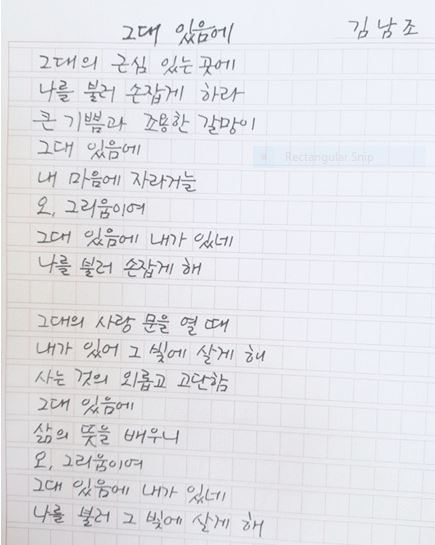 그대 있음에 김남조
그대의 근심 있는 곳에
나를 불러 손잡게 하라
큰 기쁨과 조용한 갈망이
그대 있음에
Rectangular Snip
내 마음에 자라거늘
오, 그리움이여
그대 있음에 내가 있네
나를 불러 손잡게 해
그대의 사랑 문을 열 때
내가 있어 그 빛에 살게 해
사는 것의 외롭고 고단함
그대 있음에
삶의 뜻을 배우니
오, 그리움이여
그대 있음에 내가 있네
나를 불러 그 빛에 살게 해